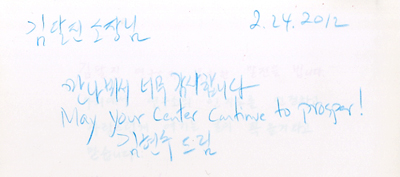 김달진 소장님 2.24.2012
만나뵈서 너무 감사합니다
May your Center continue to prosper!
김현수 드림